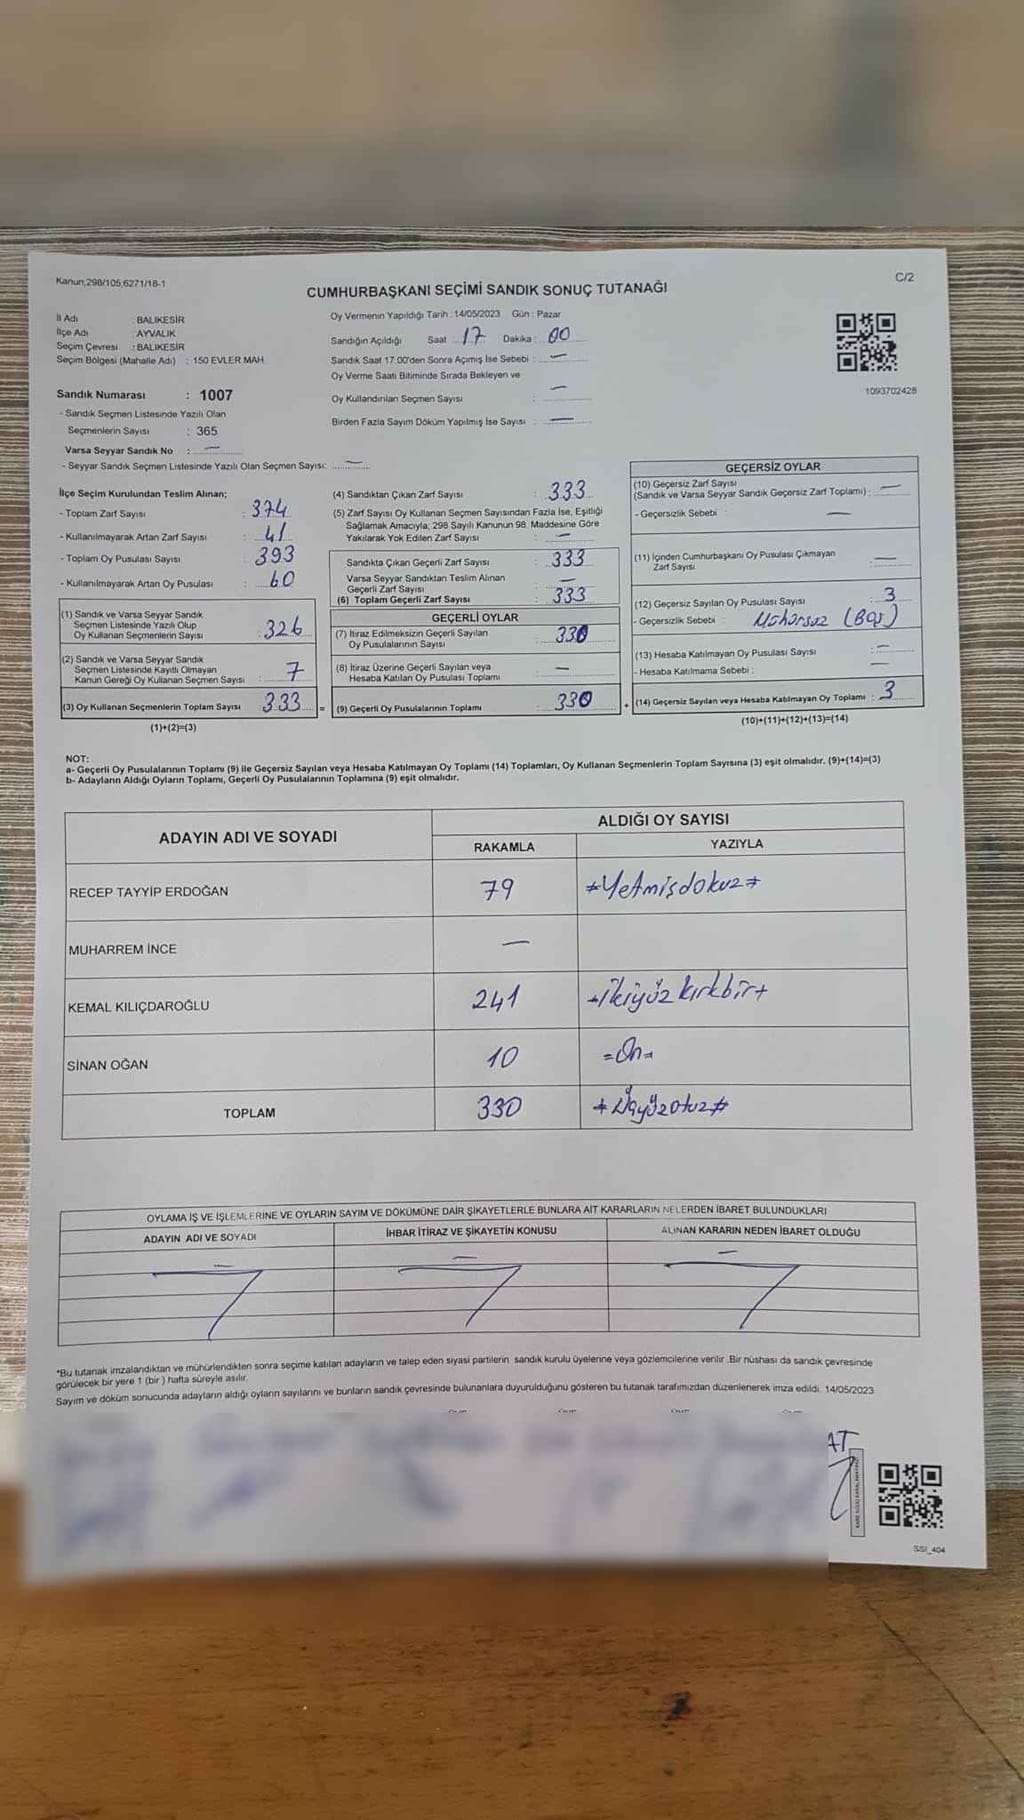 Kanun;298/105;6271/18-1
C/2
CUMHURBAŞKANI SEÇİMİ SANDIK SONUÇ TUTANAĞI
İl Adı : BALIKESİR
İlçe Adı : AYVALIK
Seçim Çevresi : BALIKESİR
Seçim Bölgesi (Mahalle Adı) : 150 EVLER MAH.
Oy Vermenin Yapıldığı Tarih : 14/05/2023 Gün : Pazar
Sandığın Açıldığı Saat 17 Dakika : 00
Sandık Saat 17:00'den Sonra Açımış İse Sebebi : —
Oy Verme Saati Bitiminde Sırada Bekleyen ve
Oy Kullandırılan Seçmen Sayısı : —
Birden Fazla Sayım Döküm Yapılmış İse Sayısı : —
1093702428
Sandık Numarası : 1007
- Sandık Seçmen Listesinde Yazılı Olan
Seçmenlerin Sayısı : 365
Varsa Seyyar Sandık No : —
- Seyyar Sandık Seçmen Listesinde Yazılı Olan Seçmen Sayısı: —
İlçe Seçim Kurulundan Teslim Alınan;
- Toplam Zarf Sayısı : 374
- Kullanılmayarak Artan Zarf Sayısı : 41
- Toplam Oy Pusulası Sayısı : 393
- Kullanılmayarak Artan Oy Pusulası : 60
(1) Sandık ve Varsa Seyyar Sandık
Seçmen Listesinde Yazılı Olup
Oy Kullanan Seçmenlerin Sayısı : 326
(2) Sandık ve Varsa Seyyar Sandık
Seçmen Listesinde Kayıtlı Olmayan
Kanun Gereği Oy Kullanan Seçmen Sayısı : 7
(3) Oy Kullanan Seçmenlerin Toplam Sayısı : 333 =
(1)+(2)=(3)
(4) Sandıktan Çıkan Zarf Sayısı : 333
(5) Zarf Sayısı Oy Kullanan Seçmen Sayısından Fazla İse, Eşitliği
Sağlamak Amacıyla; 298 Sayılı Kanunun 98. Maddesine Göre
Yakılarak Yok Edilen Zarf Sayısı : —
Sandıkta Çıkan Geçerli Zarf Sayısı : 333
Varsa Seyyar Sandıktan Teslim Alınan
Geçerli Zarf Sayısı : —
(6) Toplam Geçerli Zarf Sayısı : 333
GEÇERLİ OYLAR
(7) İtiraz Edilmeksizin Geçerli Sayılan
Oy Pusulalarının Sayısı : 330
(8) İtiraz Üzerine Geçerli Sayılan veya
Hesaba Katılan Oy Pusulası Toplamı : —
(9) Geçerli Oy Pusulalarının Toplamı : 330 +
GEÇERSİZ OYLAR
(10) Geçersiz Zarf Sayısı
(Sandık ve Varsa Seyyar Sandık Geçersiz Zarf Toplamı) : —
- Geçersizlik Sebebi : —
(11) İçinden Cumhurbaşkanı Oy Pusulası Çıkmayan
Zarf Sayısı : —
(12) Geçersiz Sayılan Oy Pusulası Sayısı : 3
- Geçersizlik Sebebi : Mühürsüz (Boş)
(13) Hesaba Katılmayan Oy Pusulası Sayısı : —
- Hesaba Katılmama Sebebi : —
(14) Geçersiz Sayılan veya Hesaba Katılmayan Oy Toplamı : 3
(10)+(11)+(12)+(13)=(14)
NOT:
a- Geçerli Oy Pusulalarının Toplamı (9) ile Geçersiz Sayılan veya Hesaba Katılmayan Oy Toplamı (14) Toplamları, Oy Kullanan Seçmenlerin Toplam Sayısına (3) eşit olmalıdır. (9)+(14)=(3)
b- Adayların Aldığı Oyların Toplamı, Geçerli Oy Pusulalarının Toplamına (9) eşit olmalıdır.
ADAYIN ADI VE SOYADI
ALDIĞI OY SAYISI
RAKAMLA YAZIYLA
RECEP TAYYİP ERDOĞAN 79 #Yetmişdokuz#
MUHARREM İNCE —
KEMAL KILIÇDAROĞLU 241 +ikiyüz kırkbir+
SİNAN OĞAN 10 =On=
TOPLAM 330 #Üçyüzotuz#
OYLAMA İŞ VE İŞLEMLERİNE VE OYLARIN SAYIM VE DÖKÜMÜNE DAİR ŞİKAYETLERLE BUNLARA AİT KARARLARIN NELERDEN İBARET BULUNDUKLARI
ADAYIN ADI VE SOYADI İHBAR İTİRAZ VE ŞİKAYETİN KONUSU ALINAN KARARIN NEDEN İBARET OLDUĞU
— — —
*Bu tutanak imzalandıktan ve mühürlendikten sonra seçime katılan adayların ve talep eden siyasi partilerin sandık kurulu üyelerine veya gözlemcilerine verilir. Bir nüshası da sandık çevresinde
görülecek bir yere 1 (bir) hafta süreyle asılır.
Sayım ve döküm sonucunda adayların aldığı oyların sayılarını ve bunların sandık çevresinde bulunanlara duyurulduğunu gösteren bu tutanak tarafımızdan düzenlenerek imza edildi. 14/05/2023
AT
SSI_404